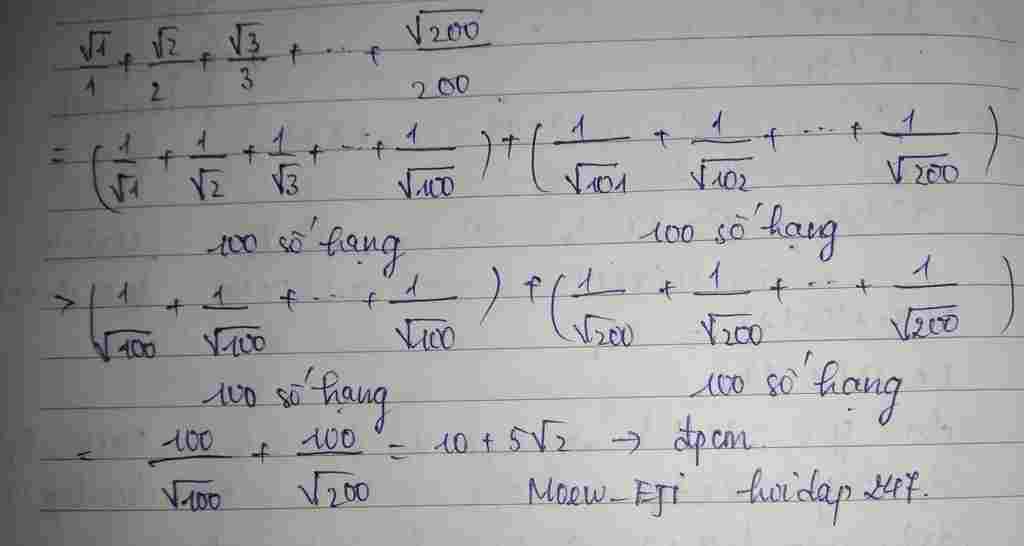 √1/1 + √2/2 + √3/3 + ... + √200/200
= (1/√1 + 1/√2 + 1/√3 + ... + 1/√100) + (1/√101 + 1/√102 + ... + 1/√200)
100 số hạng 100 số hạng
> (1/√100 + 1/√100 + ... + 1/√100) + (1/√200 + 1/√200 + ... + 1/√200)
100 số hạng 100 số hạng
= 100/√100 + 100/√200 = 10 + 5√2 → đpcm
hoidap247.